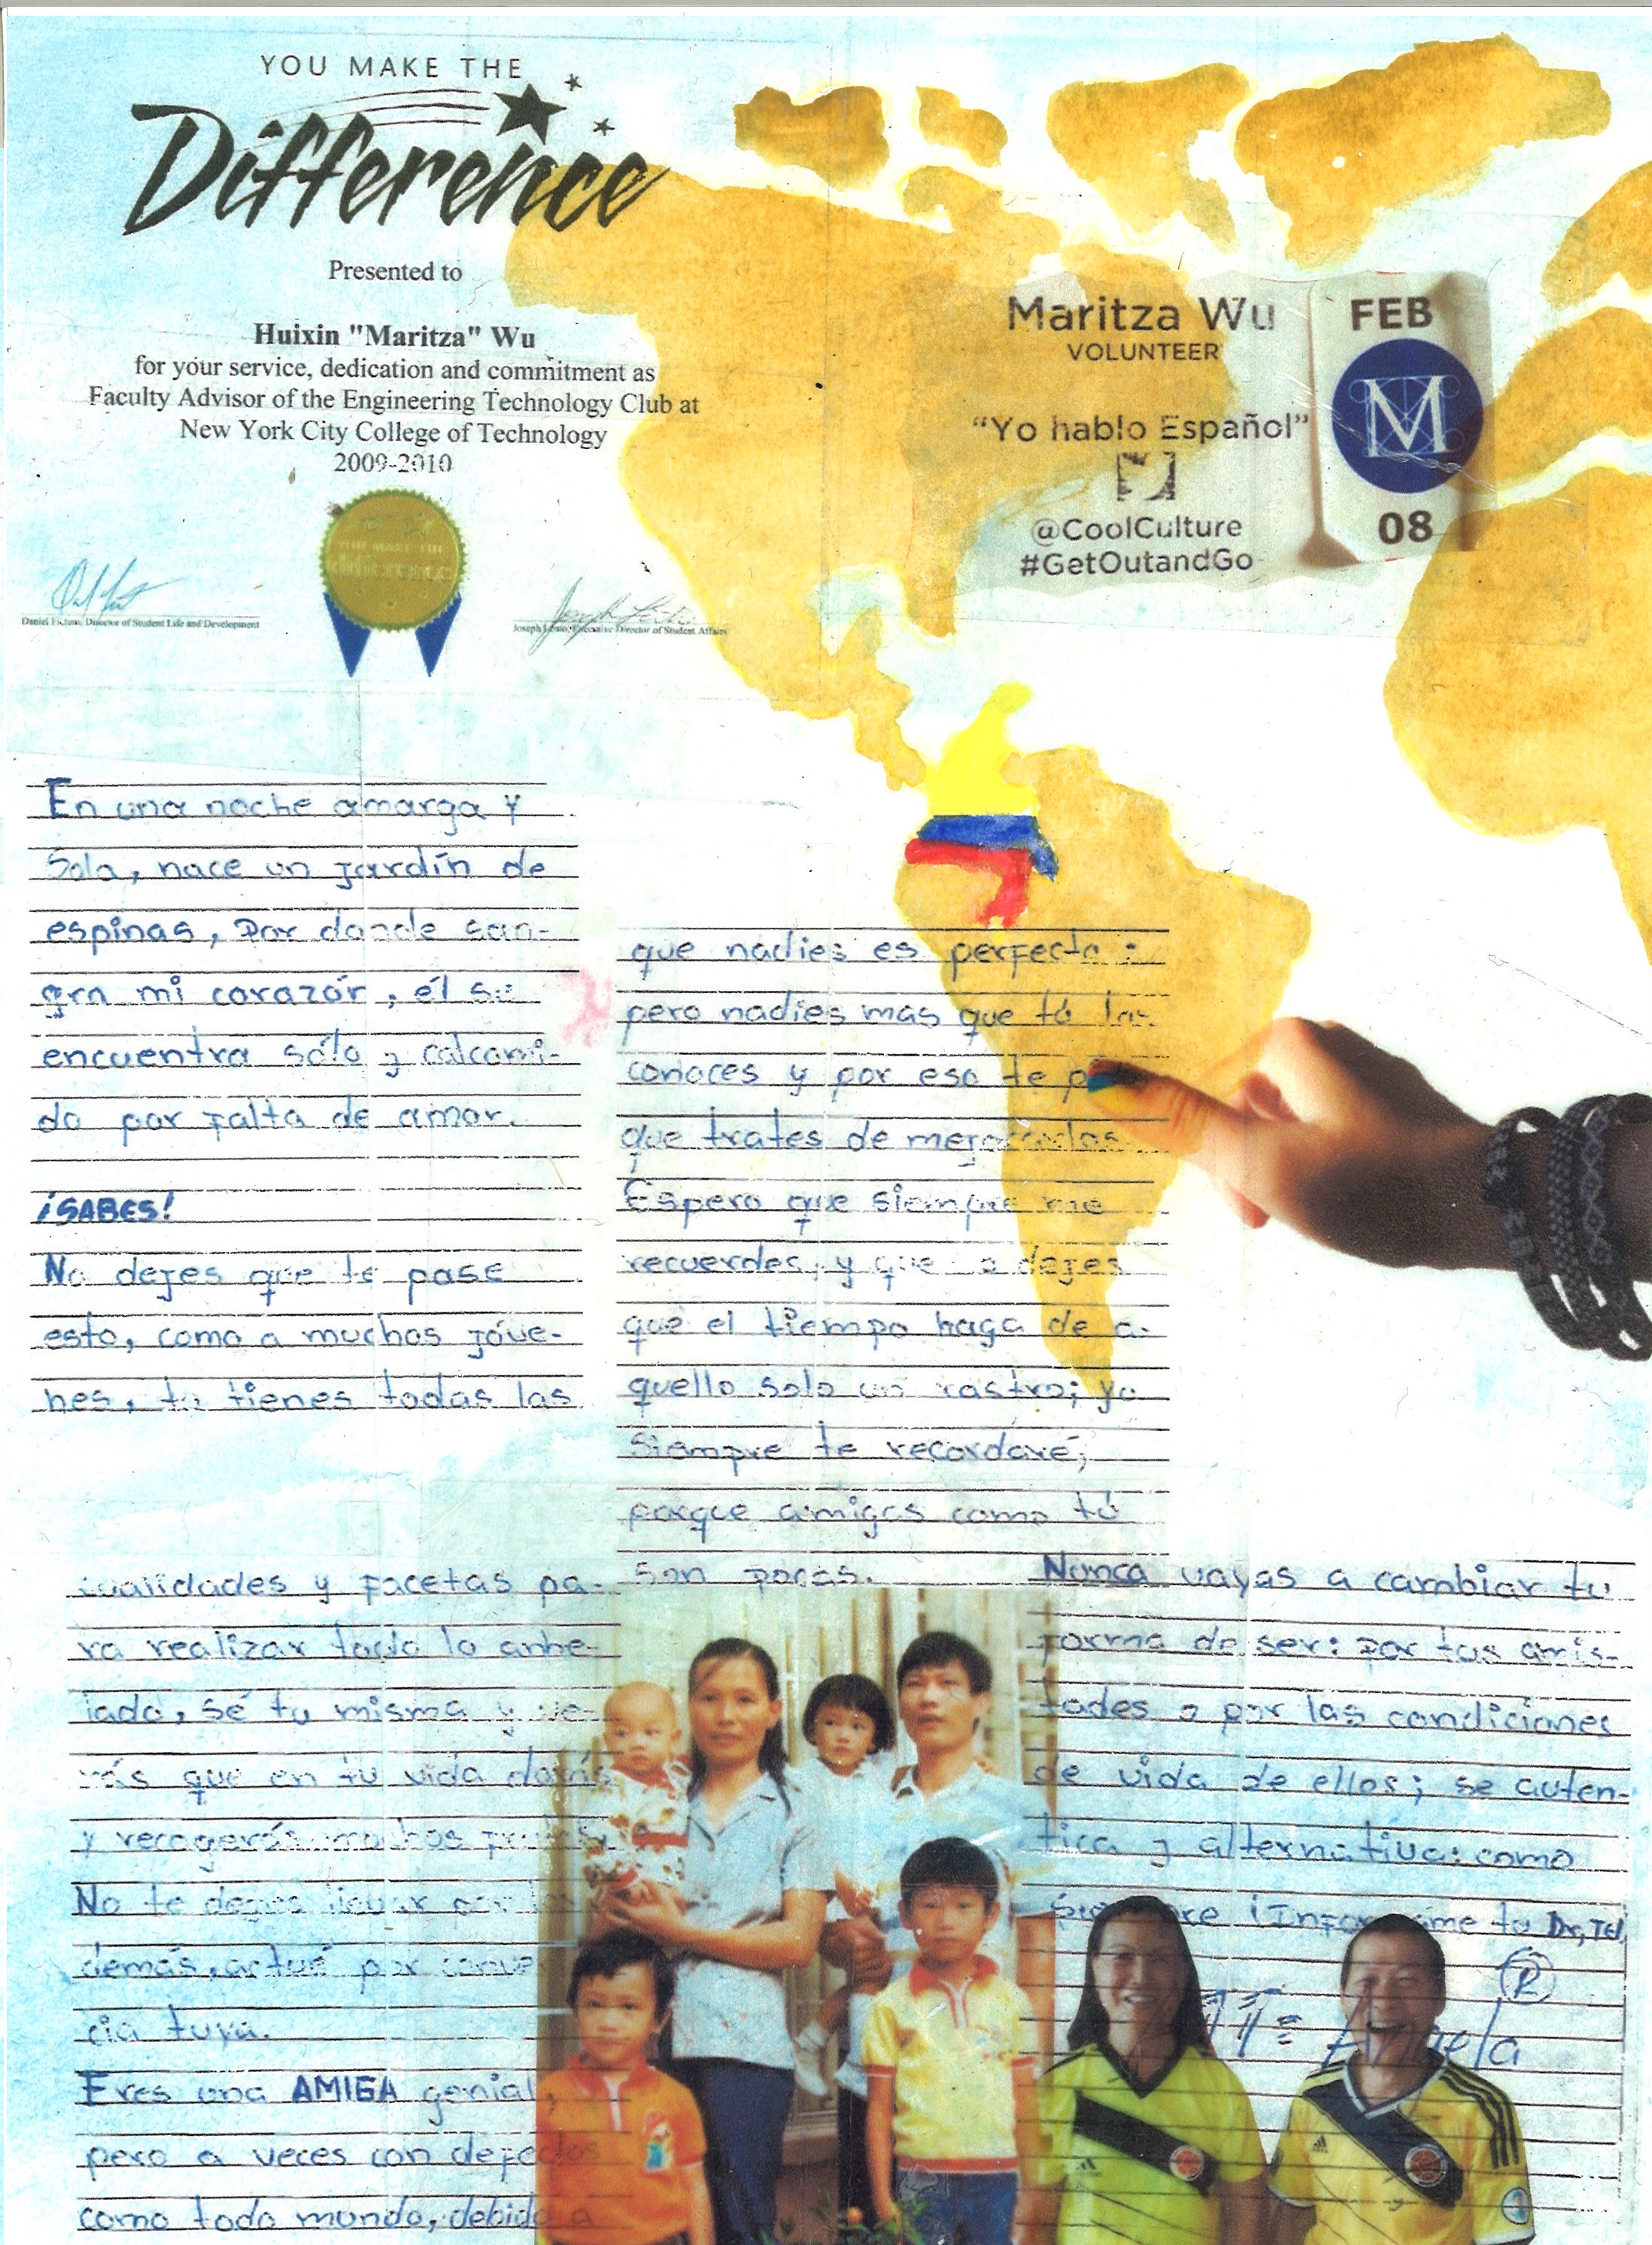 YOU MAKE THE
Difference
Presented to
Huixin "Maritza" Wu
for your service, dedication and commitment as
Faculty Advisor of the Engineering Technology Club at
New York City College of Technology
2009-2010
YOU MAKE THE
difference
Director of Student Life and Development
Executive Director of Student Affairs
Maritza Wu
VOLUNTEER
"Yo hablo Español"
@CoolCulture
#GetOutandGo
FEB
M
08
En una noche amarga y
Sola, nace un jardín de
espinas, por donde san-
gra mi corazón, él se
encuentra sólo y calcomi-
do por falta de amor.
¡SABES!
No dejes que te pase
esto, como a muchos jóve-
nes, tu tienes todas las
cualidades y facetas pa-
ra realizar todo lo anhe-
lado, sé tu misma y ve-
rás que en tu vida darás
y recogerás muchos
No te dejes llevar por los
demás, actué por
cia tuya.
Eres una AMIGA genial,
pero a veces con defectos
como todo mundo, debido a
que nadies es perfecto:
pero nadies mas que tú los
conoces y por eso te
que trates de
Espero que siempre me
recuerdes, y que dejes
que el tiempo haga de a-
quello solo un rastro; yo
siempre te recordaré,
porque amigas como tú
son pocas.
Nunca vayas a cambiar tu
forma de ser: por tus amis-
tades o por las condiciones
de vida de ellos; se auten-
tica y alternativa: como
siempre Dr, Tel
Angela
R